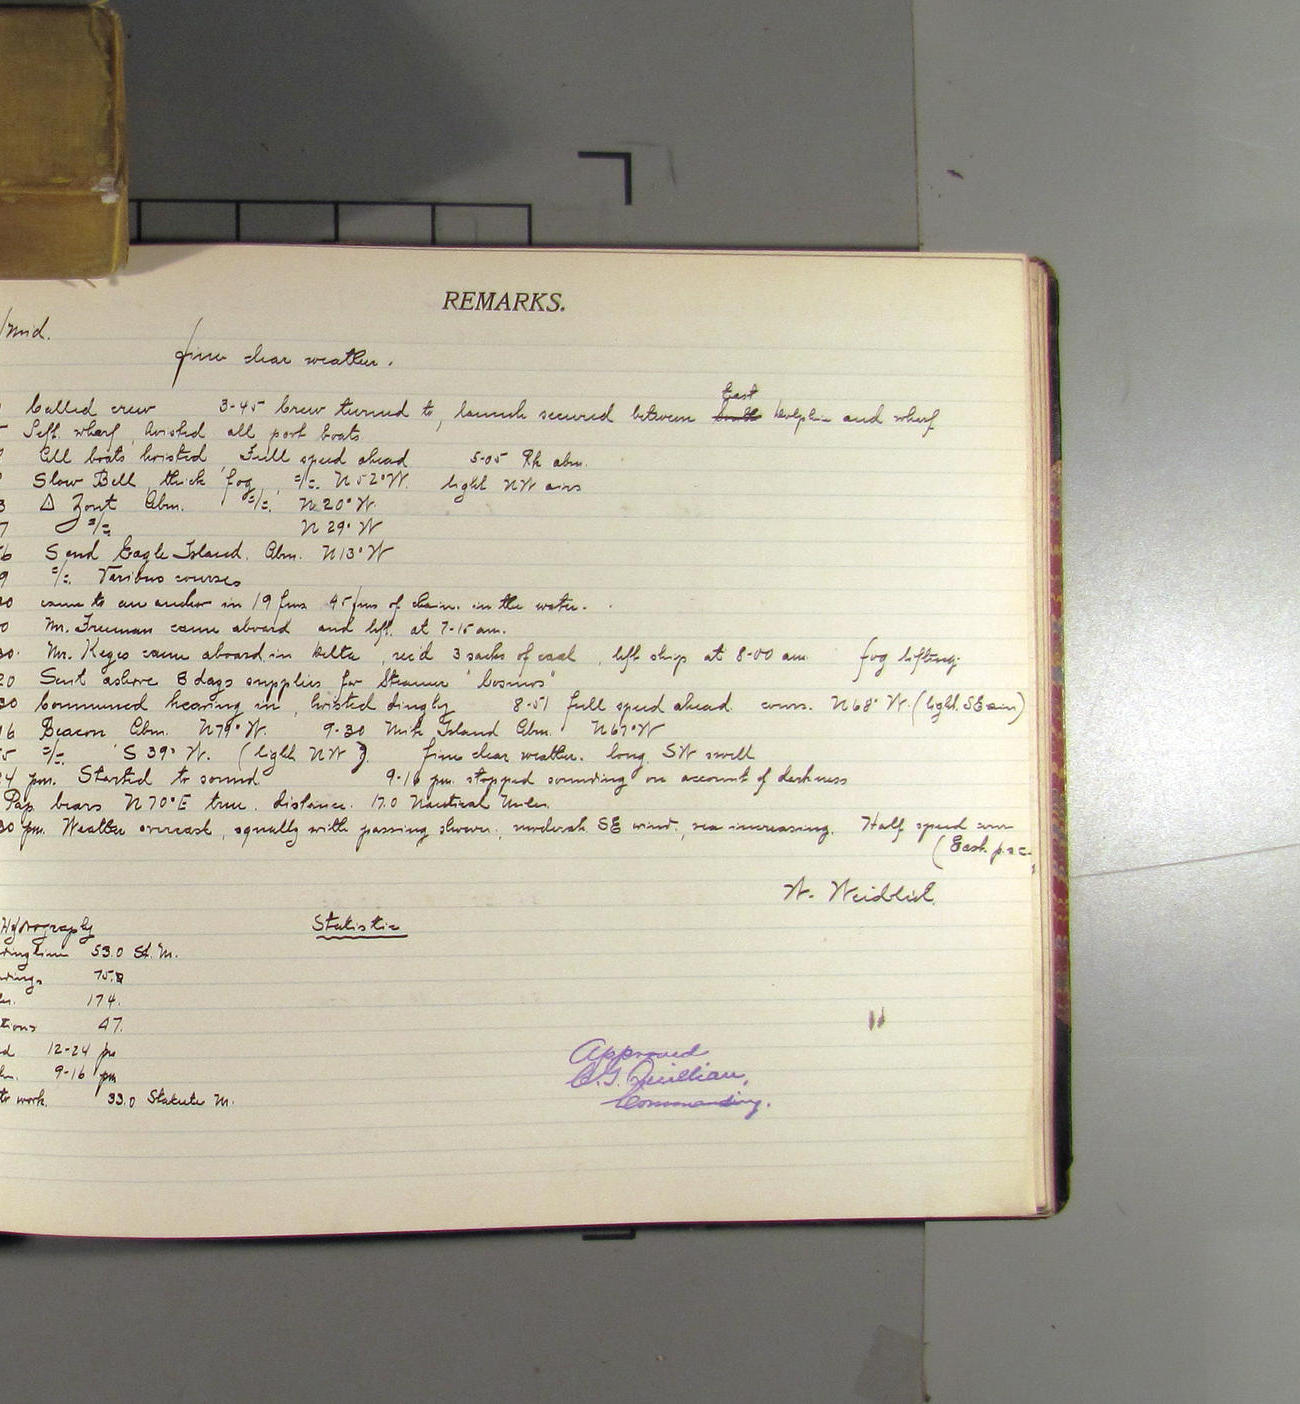 REMARKS.
/mid.
fine clear weather.
East
Called crew 3-45 Crew turned to, launch secured between dolphin and wharf
Left wharf, hoisted all port boats
All boats hoisted, Full speed ahead 5-05 Rk abm.
Slow Bell, thick fog, =/=. N 52° W. light NW airs
△ Zont Abm. =/=. N 20° W.
=/= N 29° W
S end Eagle Island. Abm. N 13° W
=/=. Various courses
came to an anchor in 19 fms 45 fms of chain. in the water.
Mr. Freeman came aboard and left. at 7-15 am.
Mr. Keyes came aboard in Delta, rec'd 3 sacks of coal, left ship at 8-00 am fog lifting.
Sent ashore 8 days supplies for Steamer "Cosmos"
Commenced heaving in, hoisted dinghy 8-51 full speed ahead. cours. N 68° W. (light. SE air)
Beacon Abm. N 79° W. 9-30 Mink Island Abm. N 67° W
=/=. S 39° W. (light NW) fine clear weather. long SW swell
24 pm. Started to sound 9-16 pm. stopped sounding on account of darkness
Pap bears N 70° E true. distance. 17.0 Nautical Miles.
30 pm. Weather overcast, squally with passing shower, moderate SE wind, sea increasing. Half speed
(East p.s.c.
W. Weidlich.
Hydrography Statistic
53.0 St. M.
75.
174.
47.
12-24 pm
9-16 pm
to work. 33.0 Statute M.
Approved
C. G. Quillian,
Commanding.